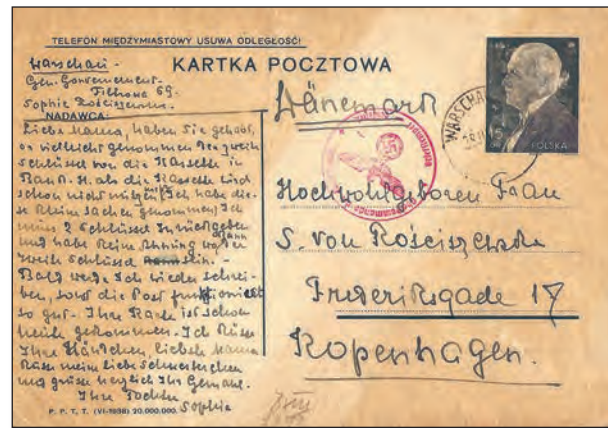 TELEFON MIĘDZYMIASTOWY USUWA ODLEGŁOŚĆ!
KARTKA POCZTOWA
Warschau -
Gen. Gouvernement -
Filtrowa 69.
Sophie
NADAWCA:
Liebe Mama, haben Sie gehabt,
oder vielleicht genommen den zweiten
Schlüssel von die Kassette in
Bank. H. als die Kassette sind
schon nicht
se kleine Sachen genommen. Ich
muss 2 Schlüssel zurückgeben
und habe keine Ahnung wo der
zweite Schlüssel kann sein. -
Bald werde Ich wieder schrei-
ben, sonst die Post funktioniert
so gut. - Ihre Karte ist schon
heute gekommen. - Ich küsse
Ihre Händchen, liebste Mama
Küsse mein liebe Schwesterchen
und grüsse herzlich Ihr Gemahl.
Ihre Tochter
Sophie
P. P. T. T. (VI-1938) 20.000.000.
Dänemark
WARSCHAU
15
POLSKA
Hochwohlgeboren Frau
S. von Rościszewska
Frederiksgade 17
Kopenhagen.